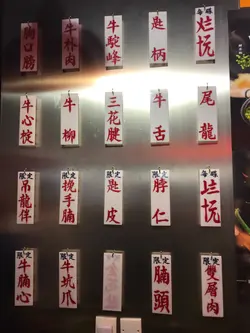 牛朴肉
牛駝峰
匙柄
每碟
牛心椗
牛柳
三花腱
牛舌
尾龍
限定
吊龍伴
限定
挽手腩
限定
匙皮
限定
脖仁
每碟
限定
牛腩心
限定
牛坑爪
限定
腩頭
限定
雙層肉